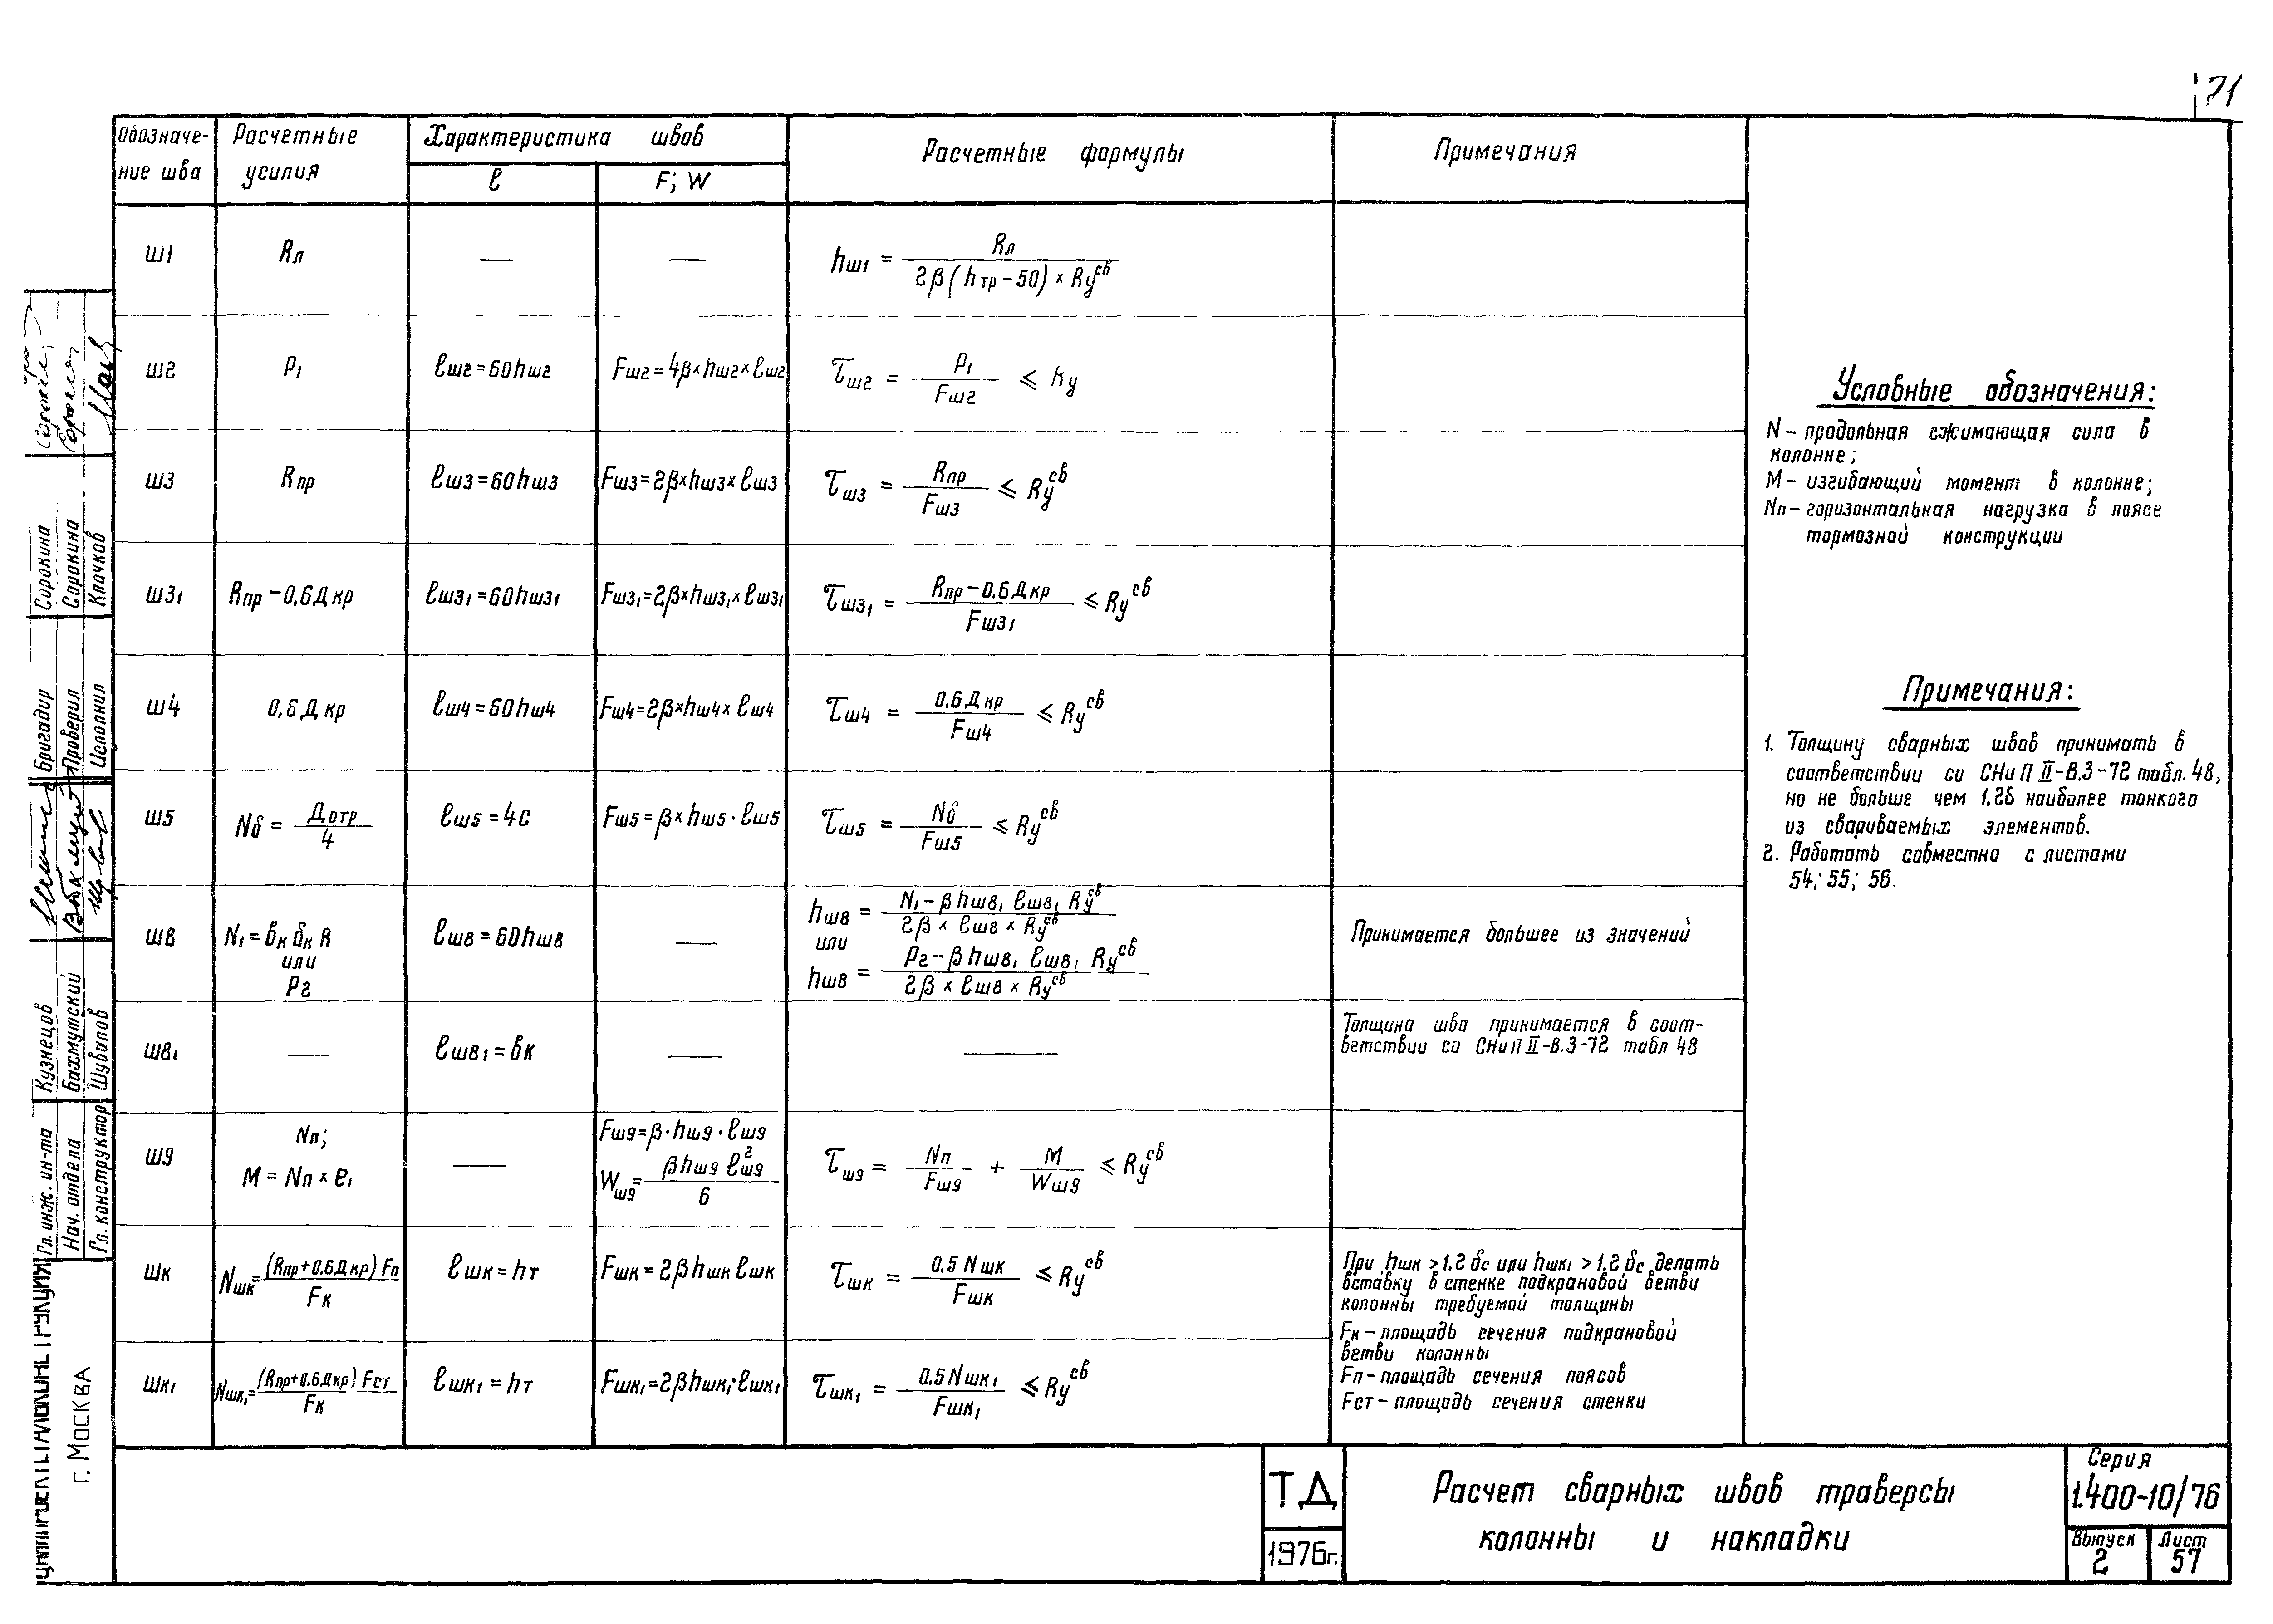 71
Обозначе-
ние шва
Расчетные
усилия
Характеристика швов
ℓ
F; W
Расчетные формулы
Примечания
Ш1
Rл
—
—
hш1 = Rл / 2β(hтр-50)×Rу^св
Ш2
P₁
ℓш2=60hш2
Fш2=4β×hш2×ℓш2
τш2 = P₁ / Fш2 ≤ Rу
Ш3
Rпр
ℓш3=60hш3
Fш3=2β×hш3×ℓш3
τш3 = Rпр / Fш3 ≤ Rу^св
Ш3₁
Rпр-0,6Дкр
ℓш3₁=60hш3₁
Fш3₁=2β×hш3₁×ℓш3₁
τш3₁ = Rпр-0,6Дкр / Fш3₁ ≤ Rу^св
Ш4
0,6Дкр
ℓш4=60hш4
Fш4=2β×hш4×ℓш4
τш4 = 0,6Дкр / Fш4 ≤ Rу^св
Ш5
Nб = Дотр / 4
ℓш5=4с
Fш5=β×hш5·ℓш5
τш5 = Nб / Fш5 ≤ Rу^св
Ш8
N₁=вк бк R
или
P2
ℓш8=60hш8
—
hш8 = N₁-βhш8₁ ℓш8₁ Rу^св / 2β×ℓш8×Rу^св
или
hш8 = P2-βhш8₁ ℓш8₁ Rу^св / 2β×ℓш8×Rу^св
Принимается большее из значений
Ш8₁
—
ℓш8₁=вк
—
—
Толщина шва принимается в соот-
ветствии со СНиП II-В.3-72 табл 48
Ш9
Nп;
M=Nп×e₁
—
Fш9=β·hш9·ℓш9
Wш9= βhш9 ℓ²ш9 / 6
τш9 = Nп / Fш9 + M / Wш9 ≤ Rу^св
Шк
Nшк= (Rпр+0,6Дкр)Fп / Fк
ℓшк=hт
Fшк=2βhшкℓшк
τшк = 0,5Nшк / Fшк ≤ Rу^св
При hшк>1,2бс или hшк₁>1,2бс делать
вставку в стенке подкрановой ветви
колонны требуемой толщины
Fк-площадь сечения подкрановой
ветви колонны
Fп-площадь сечения поясов
Fст-площадь сечения стенки
Шк₁
Nшк₁= (Rпр+0,6Дкр)Fст / Fк
ℓшк₁=hт
Fшк₁=2βhшк₁·ℓшк₁
τшк₁ = 0,5Nшк₁ / Fшк₁ ≤ Rу^св
Условные обозначения:
N-продольная сжимающая сила в
колонне;
M-изгибающий момент в колонне;
Nп-горизонтальная нагрузка в поясе
тормозной конструкции
Примечания:
1. Толщину сварных швов принимать в
соответствии со СНиП II-В.3-72 табл.48,
но не больше чем 1,2б наиболее тонкого
из свариваемых элементов.
2. Работать совместно с листами
54; 55; 56.
Бригадир Сорокина
Проверил Сорокина
Исполнил Клачков
Гл. инж. ин-та Кузнецов
Нач. отдела Бахмутский
Гл. конструктор Шувалов
г. Москва
ТД
1976г.
Расчет сварных швов траверсы
колонны и накладки
Серия
1.400-10/76
Выпуск
2
Лист
57